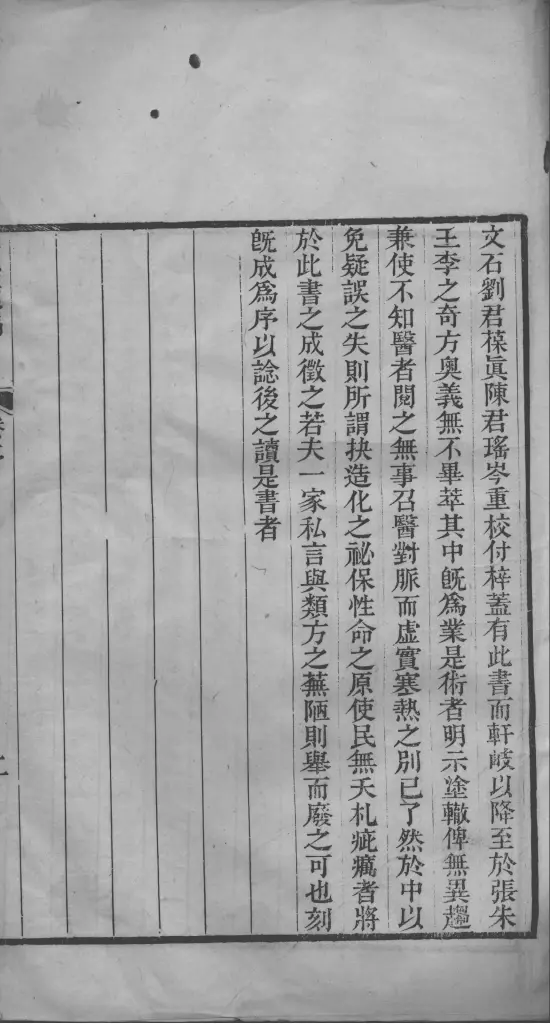 文石劉君葆眞陳君瑤岑重校付梓蓋有此書而軒岐以降至於張朱
王李之奇方奧義無不畢萃其中旣爲業是術者明示塗轍俾無異趨
兼使不知醫者閱之無事召醫對脈而虛實寒熱之別已了然於中以
免疑誤之失則所謂抉造化之祕保性命之原使民無夭札疵癘者將
於此書之成徵之若夫一家私言與類方之蕪陋則舉而廢之可也刻
旣成爲序以諗後之讀是書者